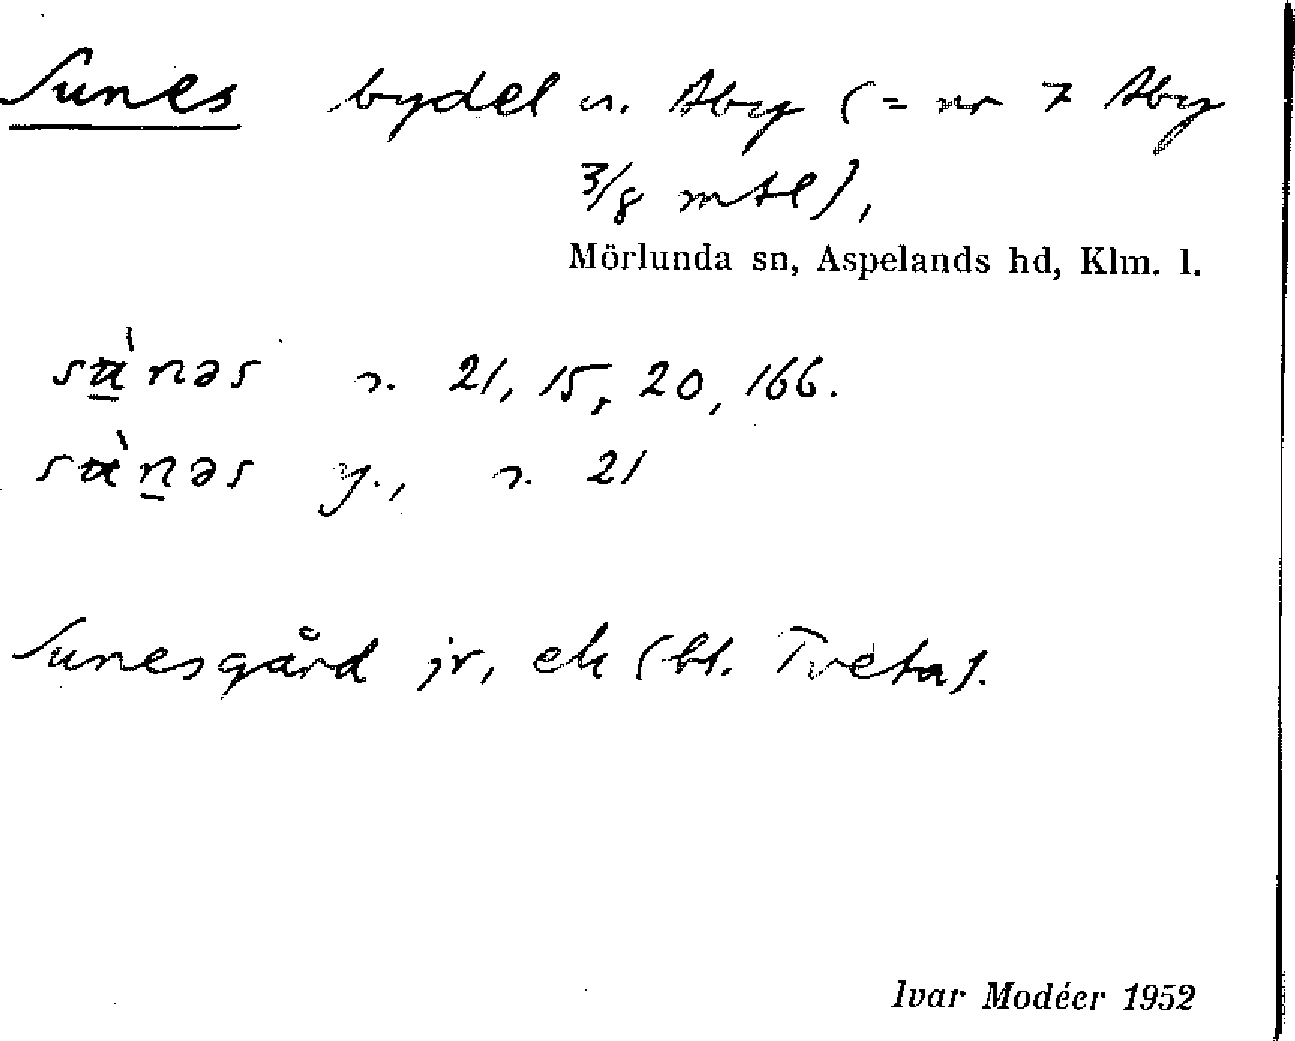 Sunes bydel u. Åby (= nr 7 Åby
3/8 mtl),
Mörlunda sn, Aspelands hd, Klm. l.
s. 21, 15, 20, 166.
y., s. 21
Sunesgård jr, ek (bl. Tveta).
Ivar Modéer 1952